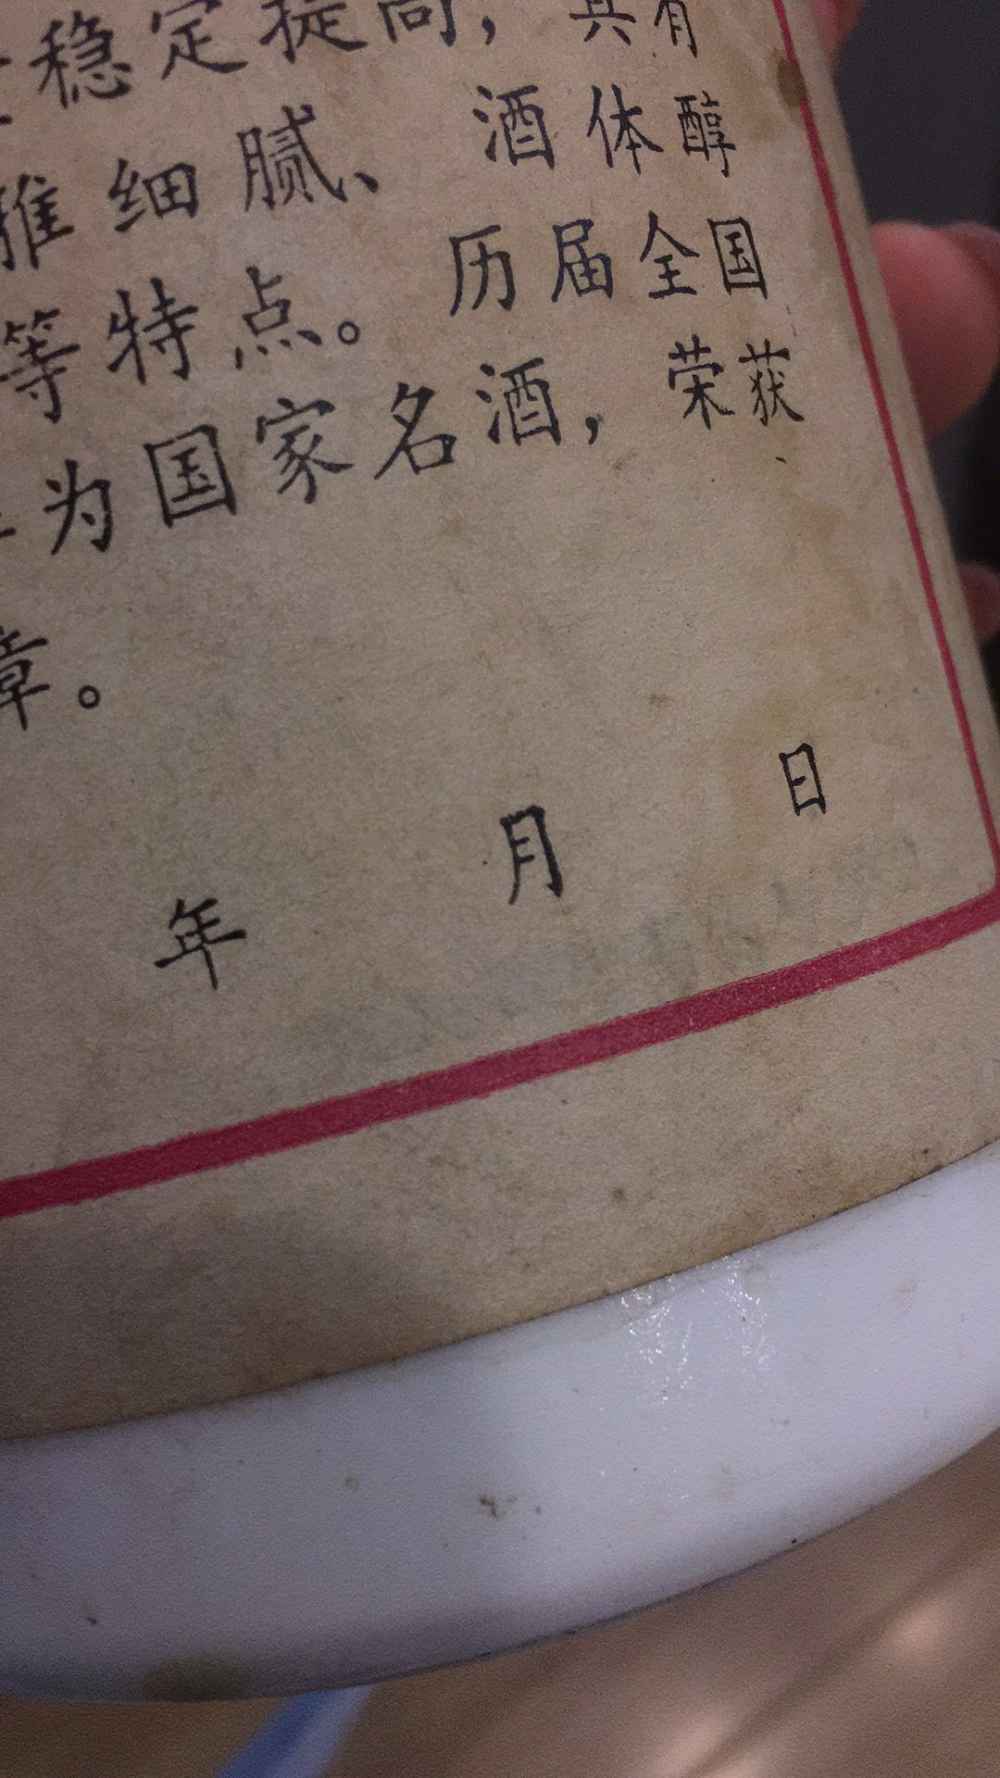 稳定提高，具有
雅细腻、酒体醇
等特点。历届全国
为国家名酒，荣获
章。
年 月 日